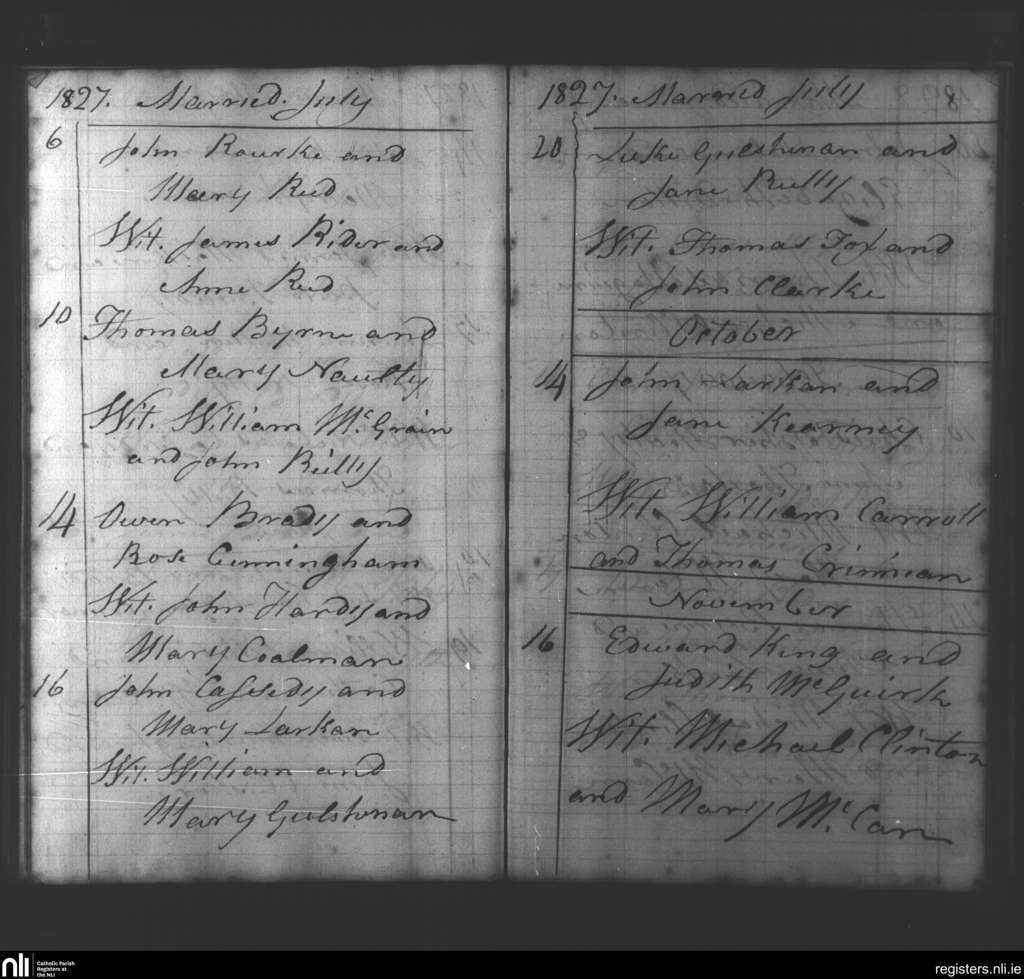 1827. Married. July
6 John Rourke and
Mary Reid
Wit. James Rider and
Anne Reid
10 Thomas Byrne and
Mary Naulty
Wit. William Mc. Grain
and John Reilly
14 Owen Brady and
Rose Cunningham
Wit. John Hardy and
Mary Coalman
16 John Cassedy and
Mary Larkan
Wit. William and
Mary Gulshenan
1827. Married July 8
20 Luke Gulshinan and
Jane Reilly
Wit. Thomas Fox and
John Clarke
October
14 John Larkan and
Jane Kearney
Wit. William Carroll
and Thomas Crinnian
November
16 Edward King and
Judith McGuirk
Wit. Michael Clinton
and Mary Mc. Can
nli Catholic Parish
Registers at
the NLI
registers.nli.ie